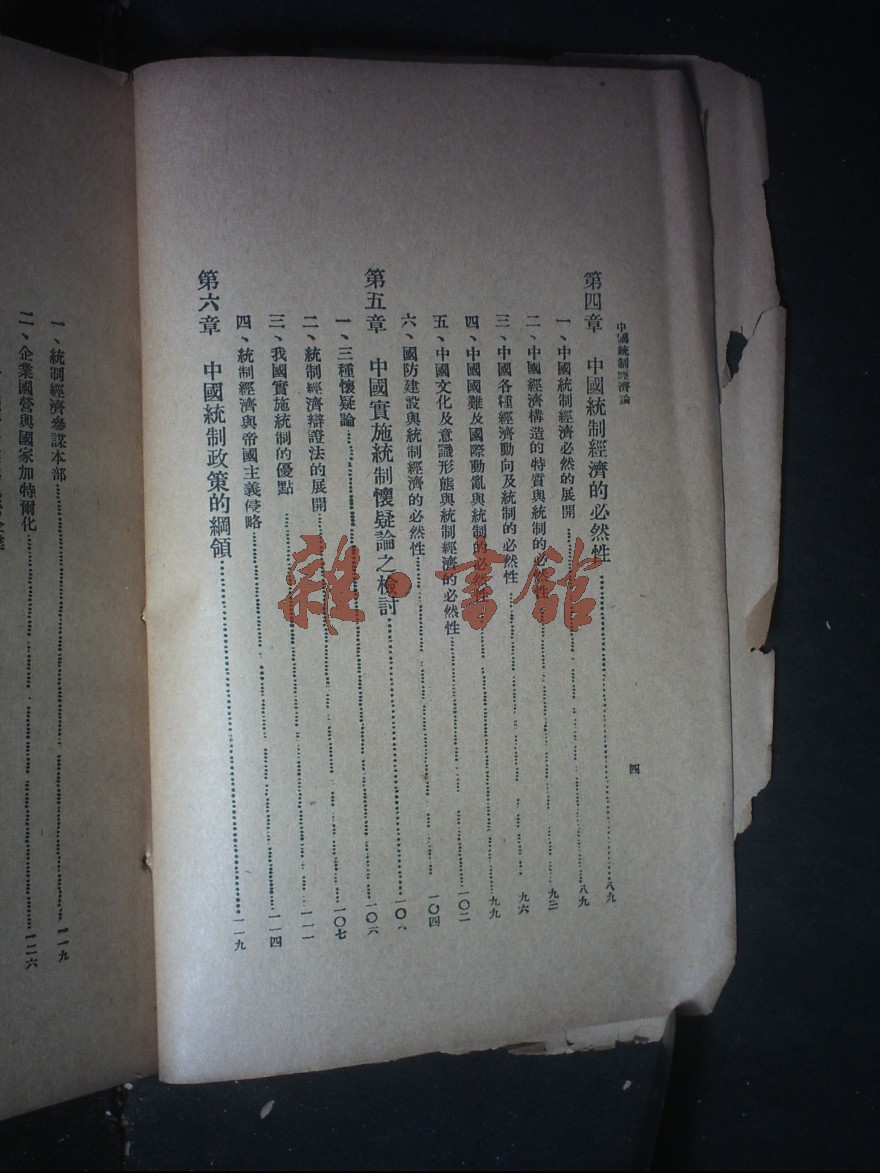 中國統制經濟論
四
第四章 中國統制經濟的必然性……八九
一、中國統制經濟必然的展開……八九
二、中國經濟構造的特質與統制的必然性……九三
三、中國各種經濟動向及統制的必然性……九六
四、中國國難及國際動亂與統制的必然性……九九
五、中國文化及意識形態與統制經濟的必然性……一〇二
六、國防建設與統制經濟的必然性……一〇四
第五章 中國實施統制懷疑論之檢討……一〇六
一、三種懷疑論……一〇六
二、統制經濟辯證法的展開……一〇七
三、我國實施統制的優點……一一一
四、統制經濟與帝國主義侵略……一一四
第六章 中國統制政策的綱領……一一九
一、統制經濟參謀本部……一一九
二、企業國營與國家加特爾化……一二六
雜·書館